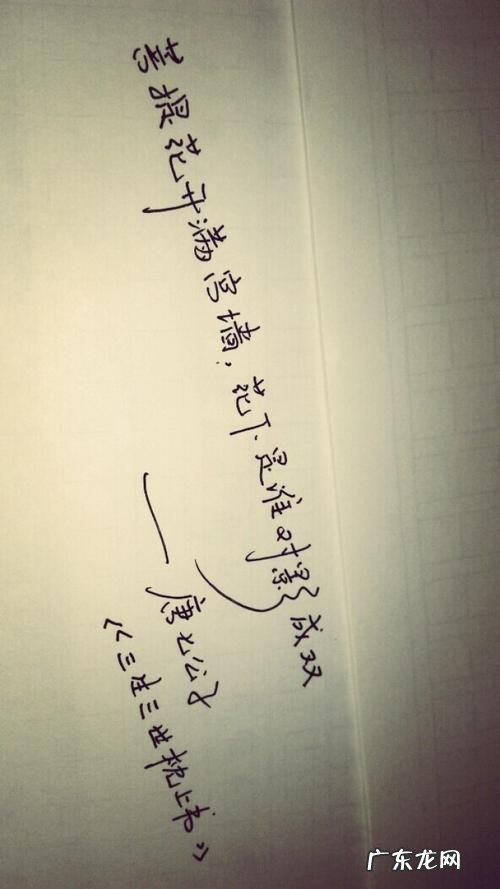 菩提花开满宫墙，花下是谁对影成双
——唐七公子
《三生三世枕上书》
广东龙网